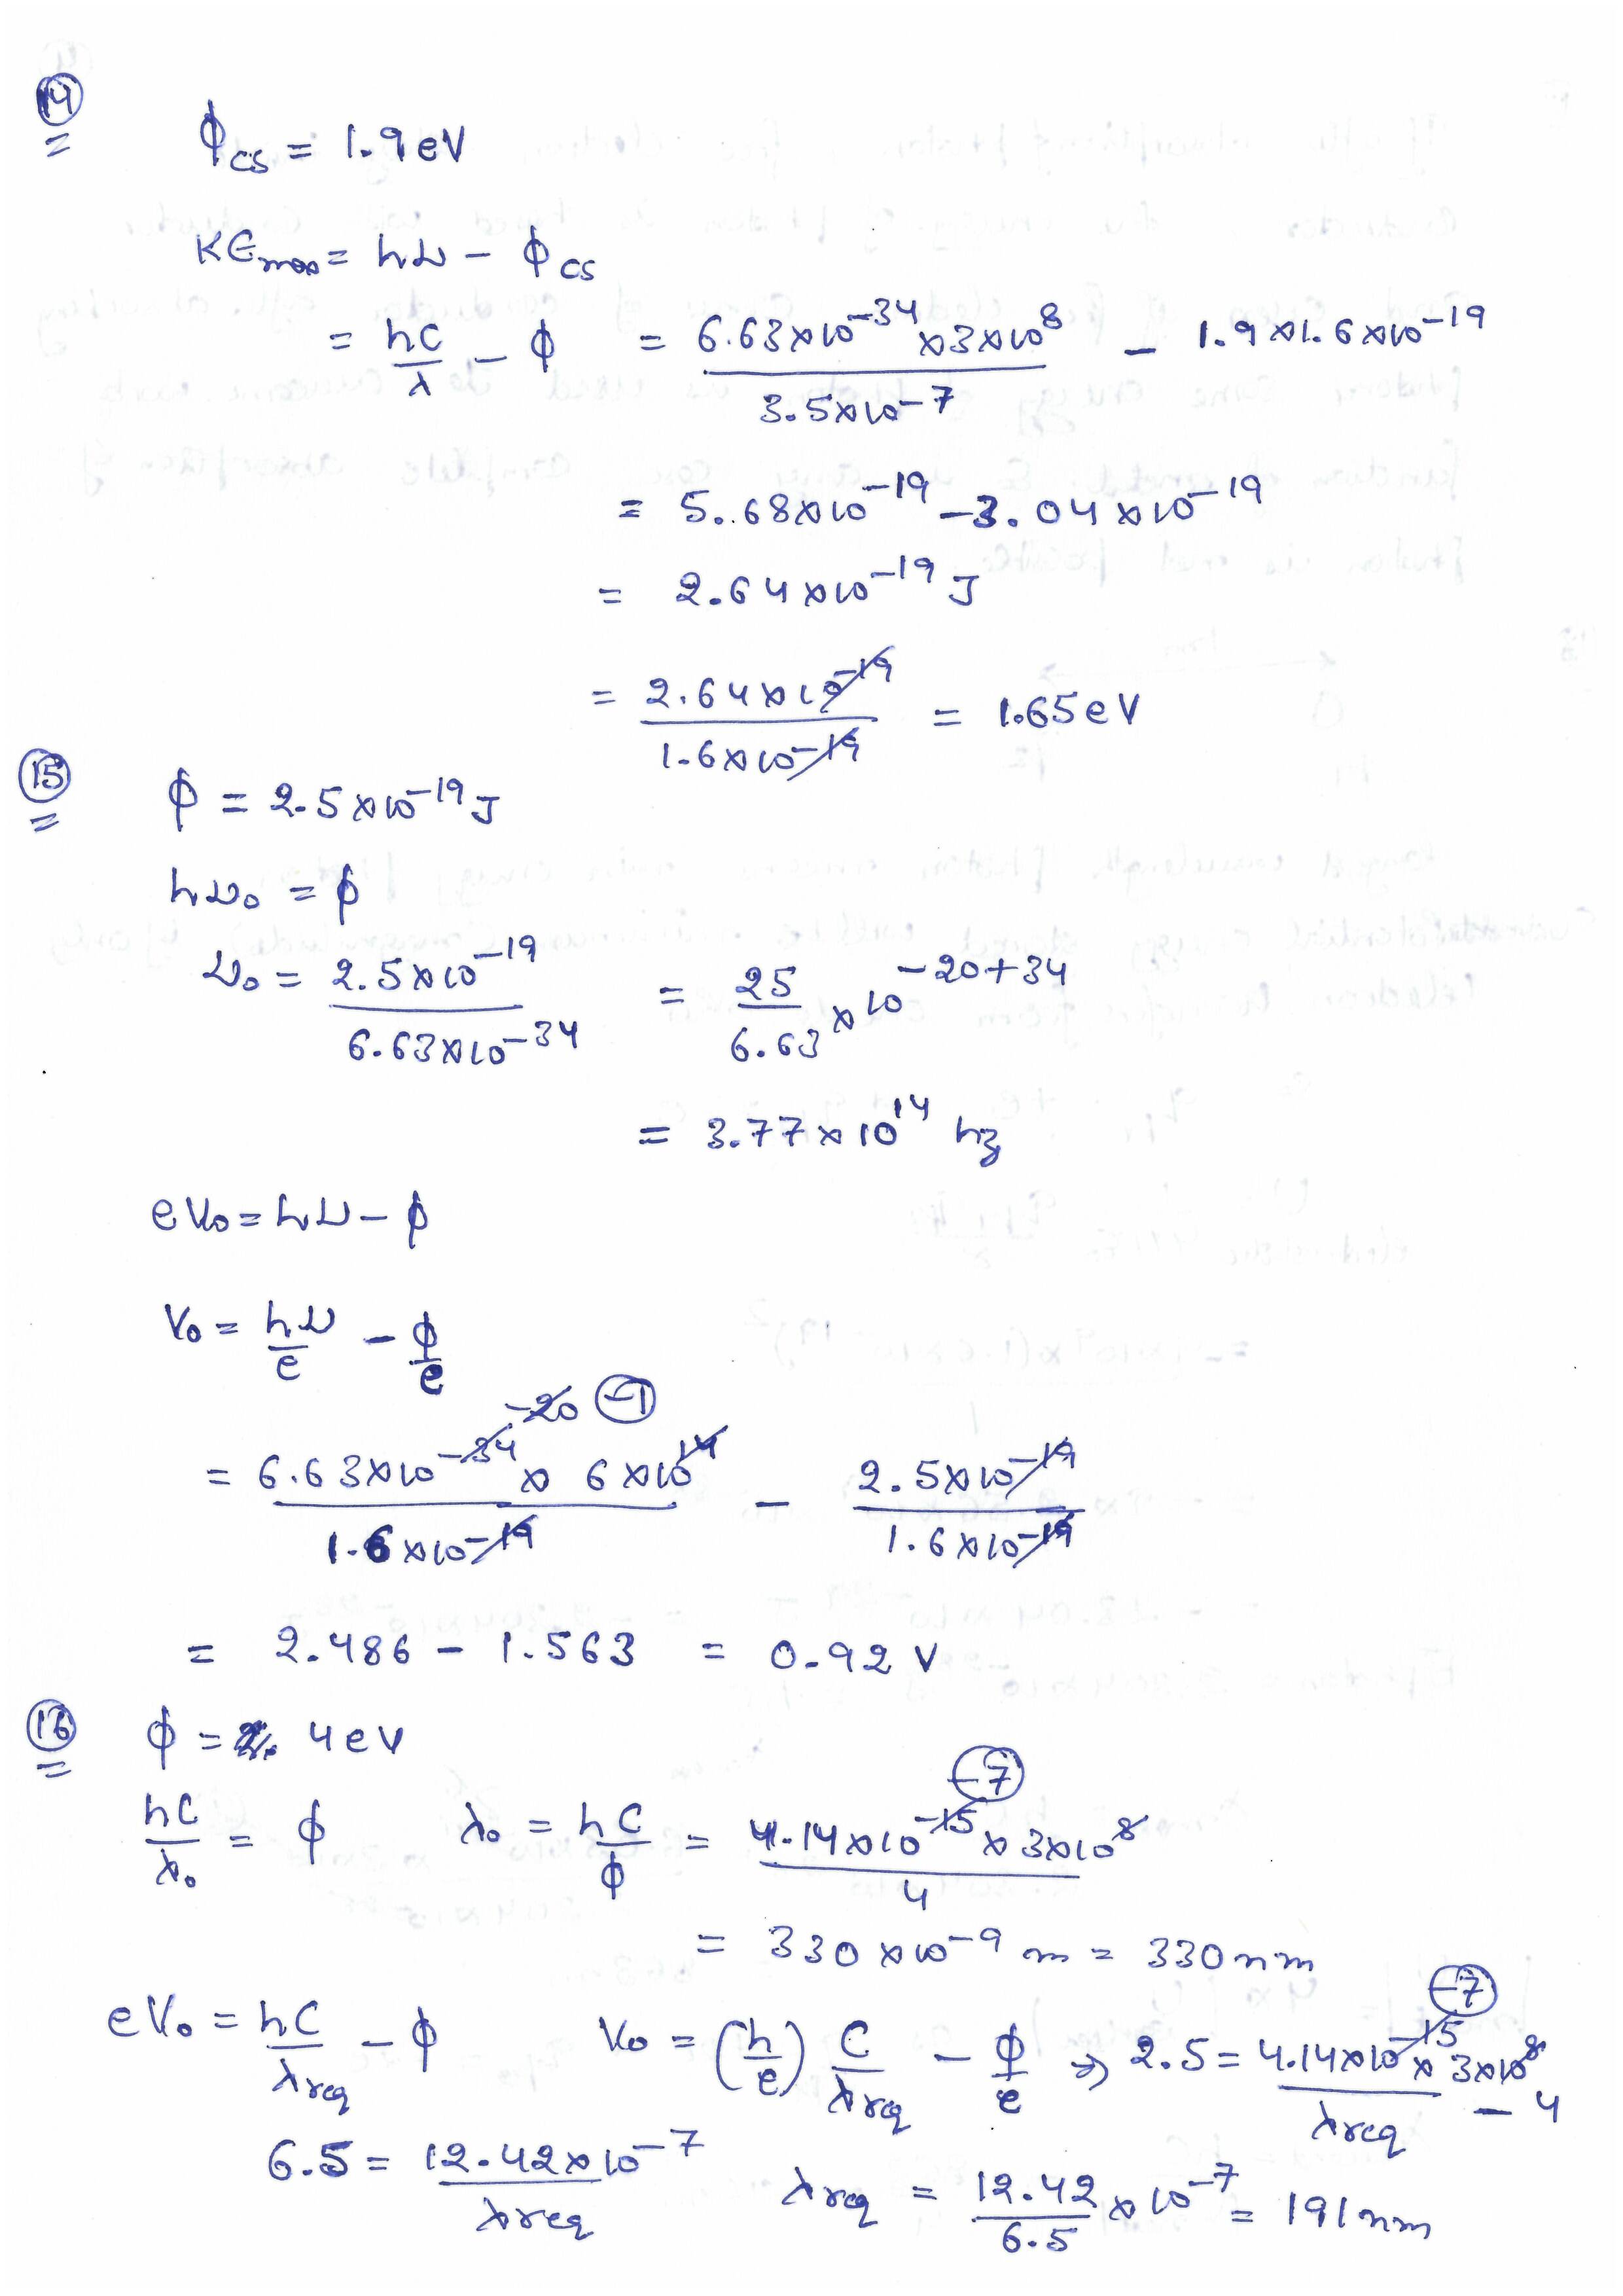 14
ϕcs = 1.9 eV
KEmax = hν - ϕcs
= hC/λ - ϕ = 6.63×10^-34 ×3×10^8 / 3.5×10^-7 - 1.9×1.6×10^-19
= 5.68×10^-19 - 3.04×10^-19
= 2.64×10^-19 J
= 2.64×10^-19 / 1.6×10^-19 = 1.65 eV
15
ϕ = 2.5×10^-19 J
hν₀ = ϕ
ν₀ = 2.5×10^-19 / 6.63×10^-34 = 25/6.63 × 10^-20+34
= 3.77×10^14 hz
eV₀ = hν - ϕ
V₀ = hν/e - ϕ/e
-20 -1
= 6.63×10^-34 × 6×10^14 / 1.6×10^-19 - 2.5×10^-19 / 1.6×10^-19
= 2.486 - 1.563 = 0.92 V
16
ϕ = 4 eV
-7
hC/λ₀ = ϕ λ₀ = hC/ϕ = 4.14×10^-15 × 3×10^8 / 4
= 330×10^-9 m = 330 nm
-7
eV₀ = hC/λreq - ϕ V₀ = (h/e) C/λreq - ϕ/e ⇒ 2.5 = 4.14×10^-15 × 3×10^8 / λreq - 4
6.5 = 12.42×10^-7 / λreq λreq = 12.42/6.5 × 10^-7 = 191 nm